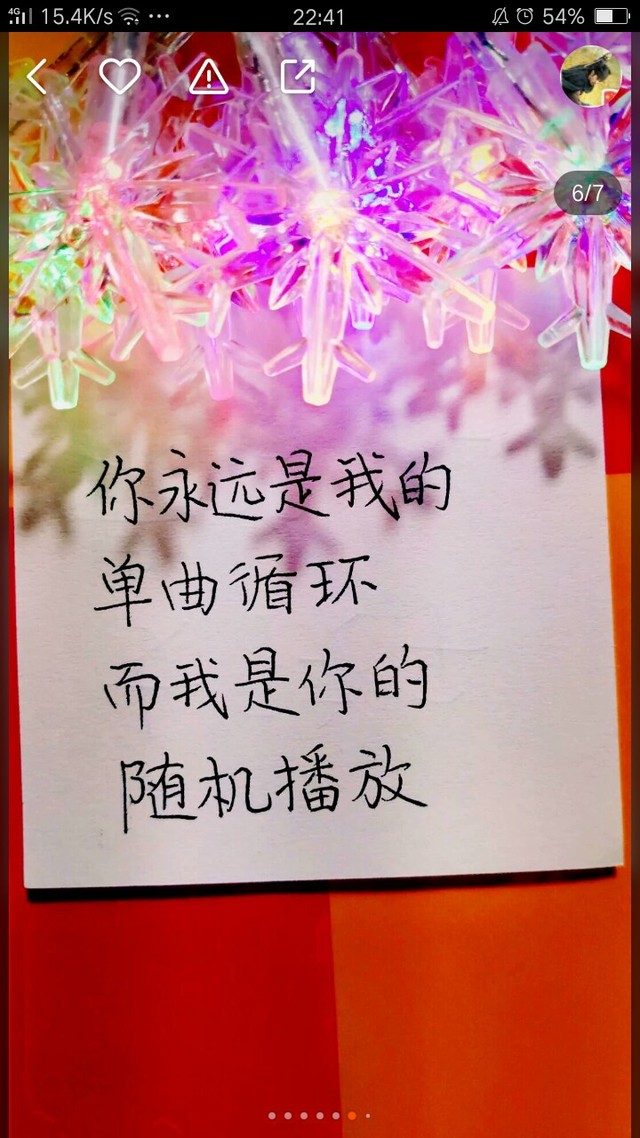 4G 15.4K/s ··· 22:41 54%
6/7
你永远是我的
单曲循环
而我是你的
随机播放